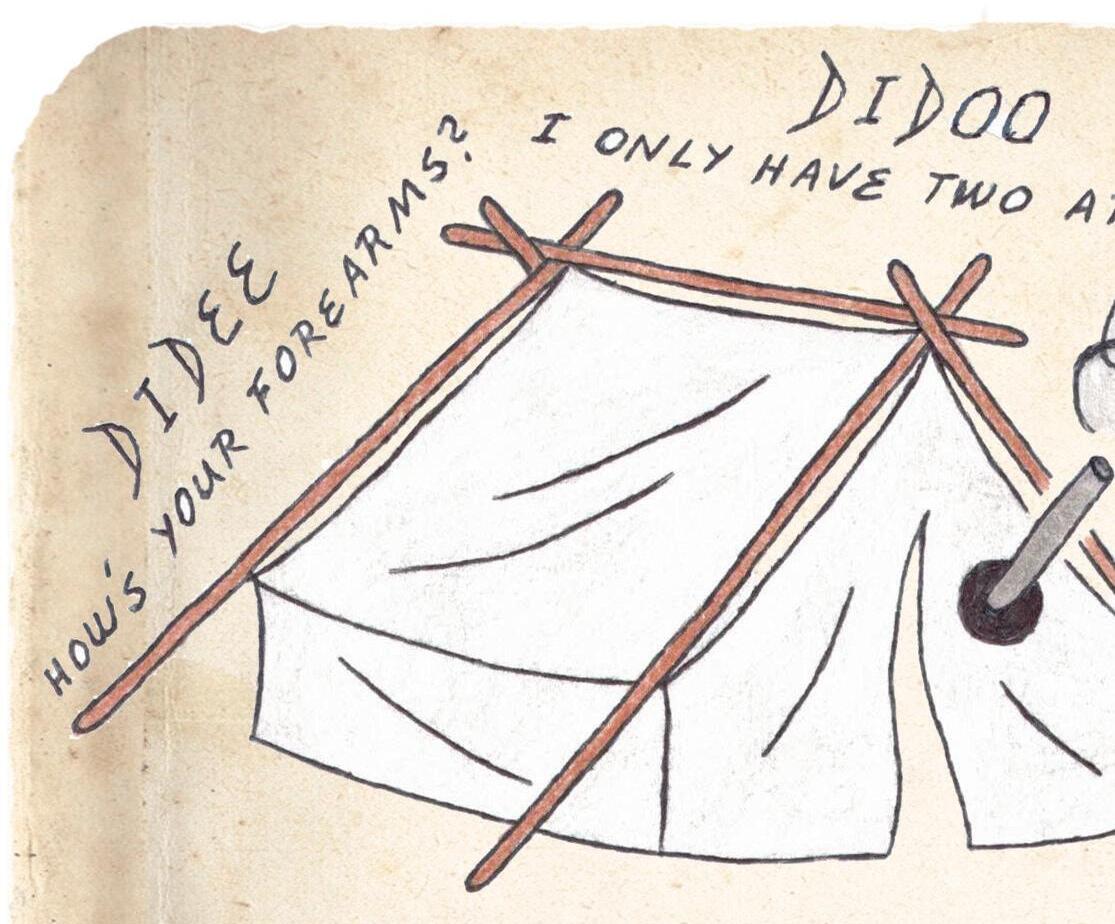 DIDEE
HOW'S YOUR FOREARMS?
DIDOO
I ONLY HAVE TWO